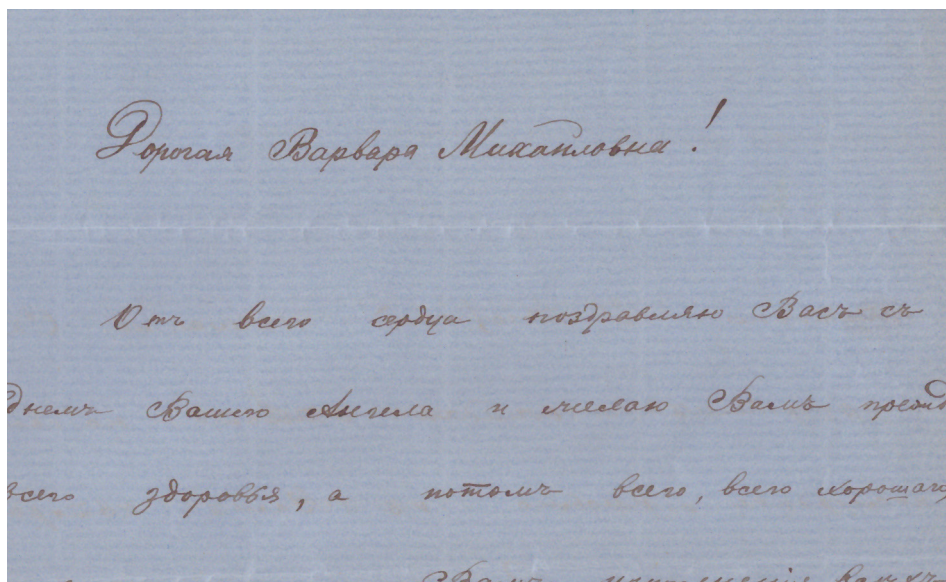 Дорогая Варвара Михайловна!
Отъ всего сердца поздравляю Васъ съ
днемъ Вашего Ангела и желаю Вамъ прежд
всего здоровья, а потомъ всего, всего хорошаго
Вамъ